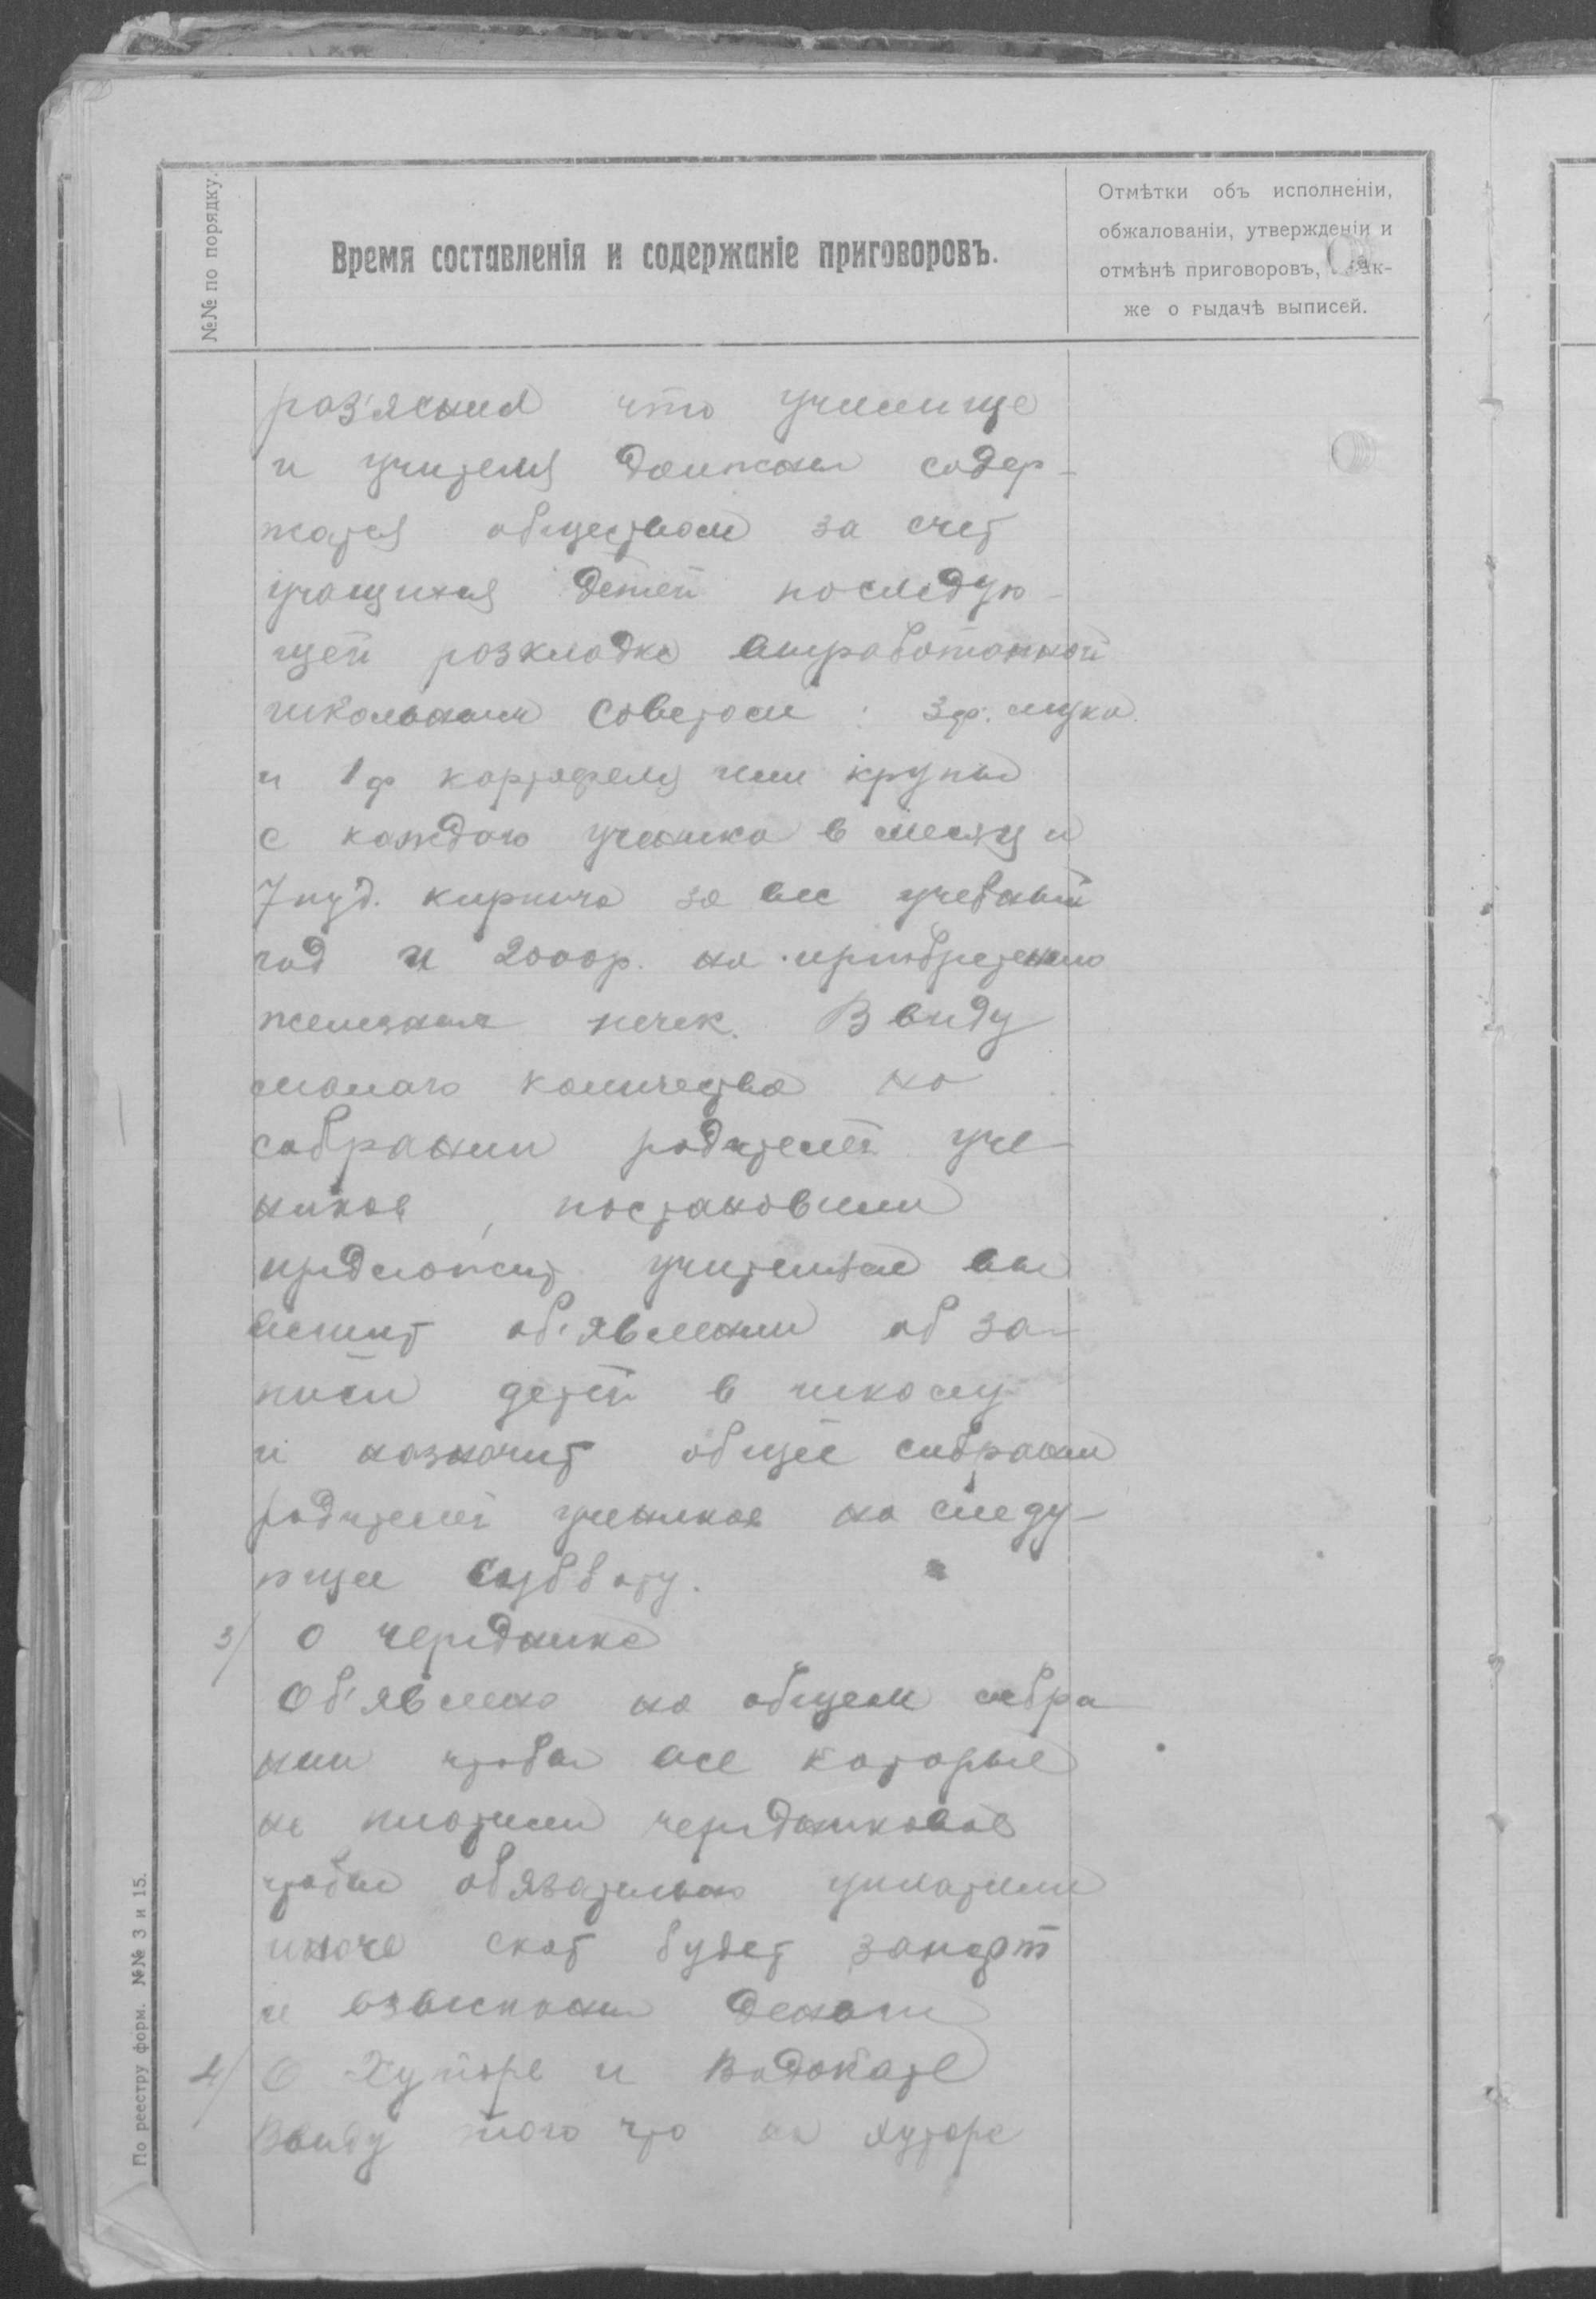 №№ по порядку.
Время составленія и содержаніе приговоровъ.
Отмѣтки объ исполненіи,
обжалованіи, утвержденіи и
отмѣнѣ приговоровъ, так-
же о выдачѣ выписей.
раз'яснил что училище
и учителя должны содер-
жатся обществом за счет
учащихся детей последую-
щей розкладке выработанной
школьным Советом: 3 ф. муки
и 1 ф картофеля или крупы
с каждого ученика в месяц и
7 пуд. кирпича за вес учебный
год и 2000 р. на приобретению
железных печек. В виду
малаго количества на
собрании родителей уче-
ников, постановили
предложит учителям вы
весит об'явлении об за-
писи детей в школу
и назначит общее собрании
родителей учеников на следу-
ющее Субботу.
3/ О череднике
Об'явлено на общем собра
нии чтобы все которые
не платили чередниковое
чтобы обязательно уплатили
иначе скот будет заперт
и взысканы деньги
4/ О Хуторе и Водокате
Ввиду того что на хуторе
По реестру форм. №№ 3 и 15.